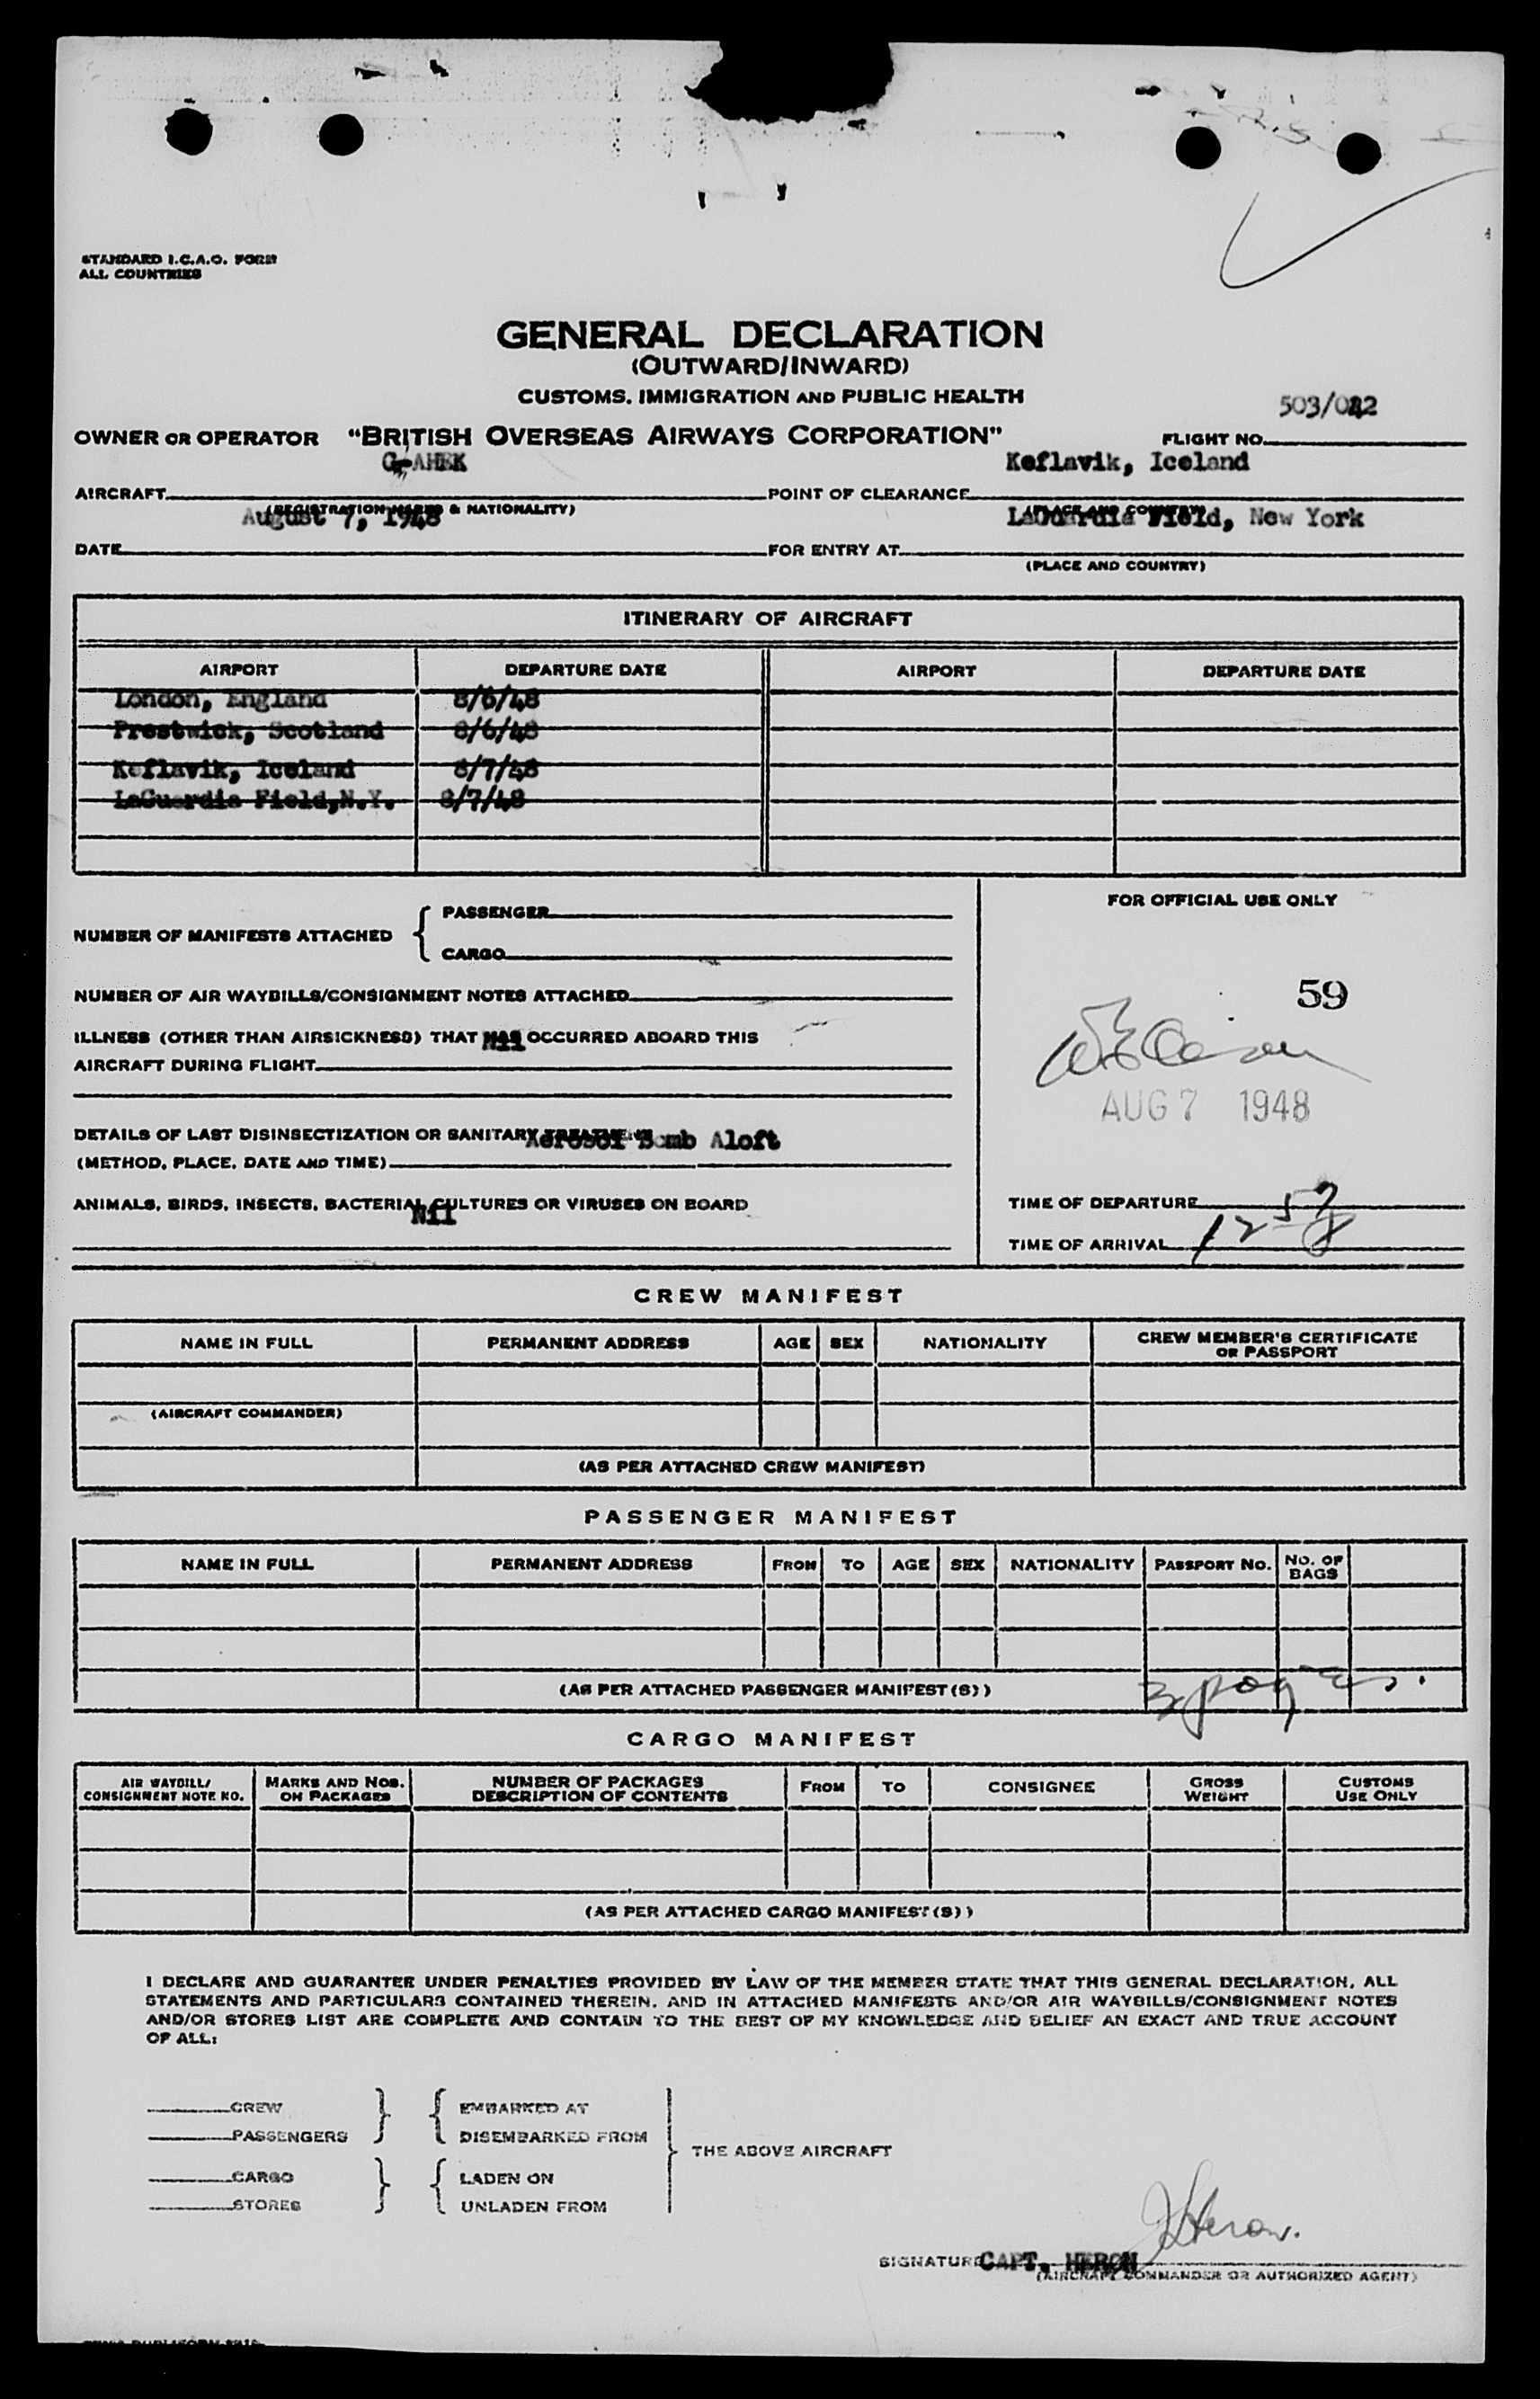 STANDARD I.C.A.O. FORM
ALL COUNTRIES
GENERAL DECLARATION
(OUTWARD/INWARD)
CUSTOMS, IMMIGRATION AND PUBLIC HEALTH
503/022
OWNER OR OPERATOR "BRITISH OVERSEAS AIRWAYS CORPORATION" FLIGHT NO.
G-AHEK Keflavik, Iceland
AIRCRAFT POINT OF CLEARANCE
(REGISTRATION MARKS & NATIONALITY) (PLACE AND COUNTRY)
August 7, 1948 LaGuardia Field, New York
DATE FOR ENTRY AT
(PLACE AND COUNTRY)
ITINERARY OF AIRCRAFT
AIRPORT DEPARTURE DATE AIRPORT DEPARTURE DATE
London, England 8/6/48
Prestwick, Scotland 8/6/48
Keflavik, Iceland 8/7/48
LaGuardia Field,N.Y. 8/7/48
FOR OFFICIAL USE ONLY
NUMBER OF MANIFESTS ATTACHED { PASSENGER
CARGO
NUMBER OF AIR WAYBILLS/CONSIGNMENT NOTES ATTACHED
59
ILLNESS (OTHER THAN AIRSICKNESS) THAT HAS OCCURRED ABOARD THIS
Nil
AIRCRAFT DURING FLIGHT
AUG 7 1948
DETAILS OF LAST DISINSECTIZATION OR SANITARY TREATMENT
Aerosol Bomb Aloft
(METHOD, PLACE, DATE AND TIME)
ANIMALS, BIRDS, INSECTS, BACTERIAL CULTURES OR VIRUSES ON BOARD
Nil
TIME OF DEPARTURE
TIME OF ARRIVAL
CREW MANIFEST
NAME IN FULL PERMANENT ADDRESS AGE SEX NATIONALITY CREW MEMBER'S CERTIFICATE OR PASSPORT
(AIRCRAFT COMMANDER)
(AS PER ATTACHED CREW MANIFEST)
PASSENGER MANIFEST
NAME IN FULL PERMANENT ADDRESS FROM TO AGE SEX NATIONALITY PASSPORT NO. NO. OF BAGS
(AS PER ATTACHED PASSENGER MANIFEST(S)) 3 pages.
CARGO MANIFEST
AIR WAYBILL/ CONSIGNMENT NOTE NO. MARKS AND NOS. ON PACKAGES NUMBER OF PACKAGES DESCRIPTION OF CONTENTS FROM TO CONSIGNEE GROSS WEIGHT CUSTOMS USE ONLY
(AS PER ATTACHED CARGO MANIFEST(S))
I DECLARE AND GUARANTEE UNDER PENALTIES PROVIDED BY LAW OF THE MEMBER STATE THAT THIS GENERAL DECLARATION, ALL
STATEMENTS AND PARTICULARS CONTAINED THEREIN, AND IN ATTACHED MANIFESTS AND/OR AIR WAYBILLS/CONSIGNMENT NOTES
AND/OR STORES LIST ARE COMPLETE AND CONTAIN TO THE BEST OF MY KNOWLEDGE AND BELIEF AN EXACT AND TRUE ACCOUNT
OF ALL:
CREW } { EMBARKED AT
PASSENGERS DISEMBARKED FROM
THE ABOVE AIRCRAFT
CARGO } { LADEN ON
STORES UNLADEN FROM
Heron.
SIGNATURE CAPT. HERON
(AIRCRAFT COMMANDER OR AUTHORIZED AGENT)